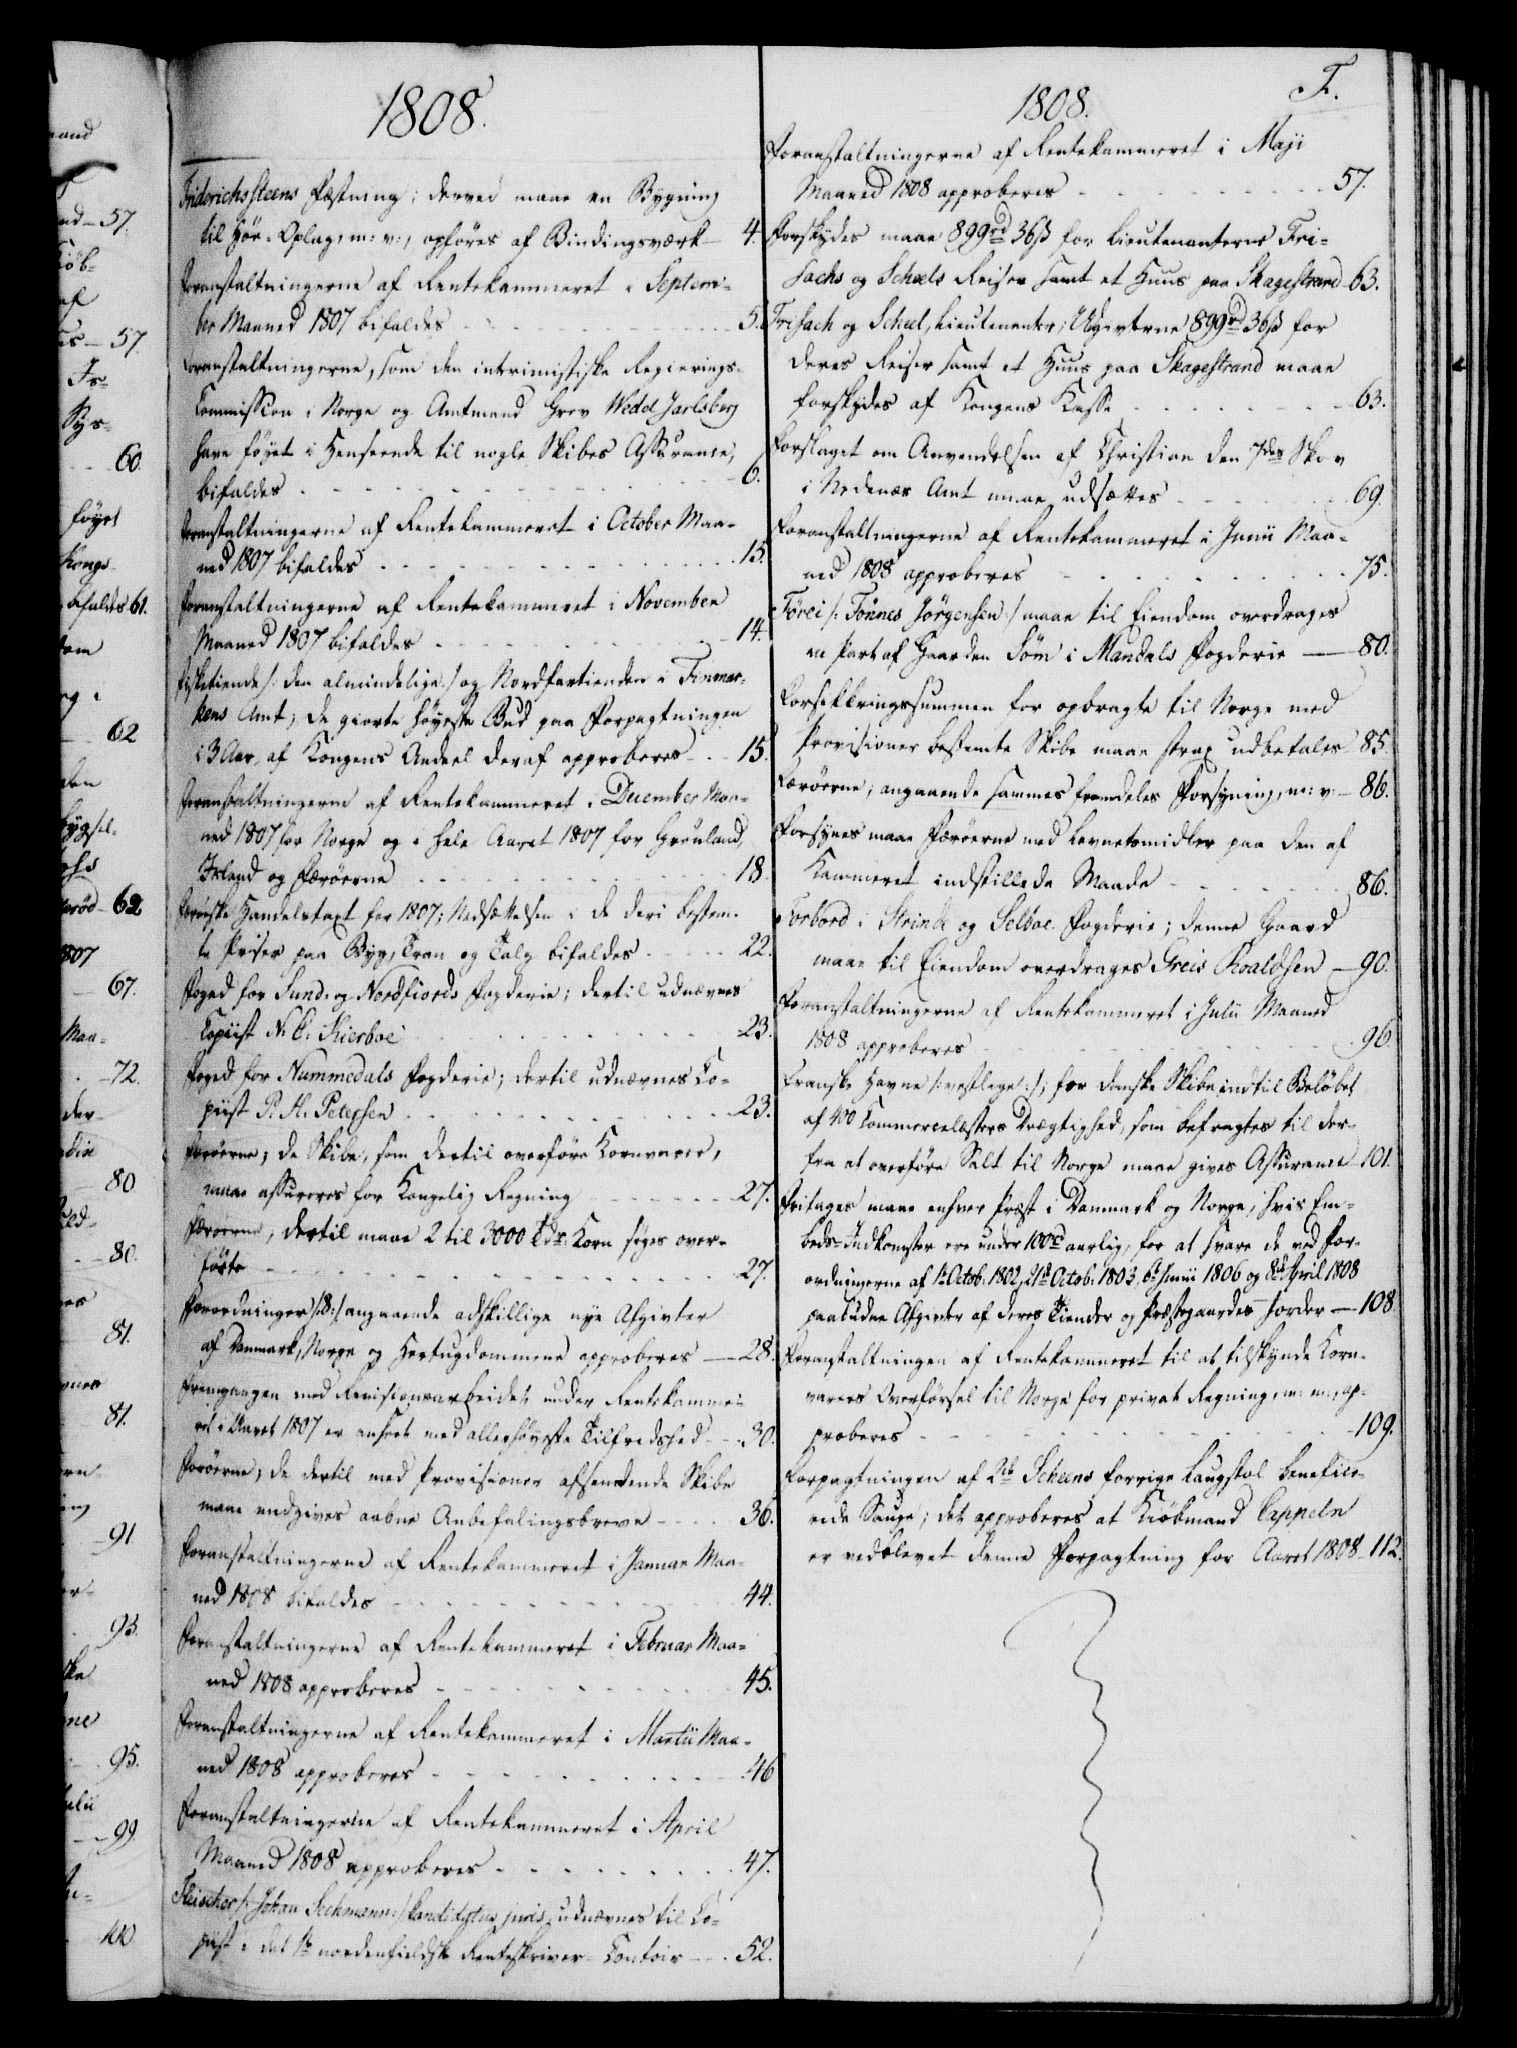 1808.
Friderichssteens Fæstning; derved maae en Bygning
til Höe-Oplag, m: v:, opföres af Bindingsværk 4.
Foranstaltningerne af Rentekammeret i Septem-
ber Maaned 1807 bifaldes 5.
Foranstaltningerne, som den intrimistiske Regierings-
Commission i Norge og Amtmand Grev Wedel Jarlsberg
have föyet i Henseende til nogle Skibes Assurance,
bifaldes 6.
Foranstaltningerne af Rentekammeret i October Maa-
ned 1807 bifaldes 13.
Foranstaltningerne af Rentekammeret i November
Maaned 1807 bifaldes 14.
Fisketiende /: den almindelige :/ og Nordfartienden i Finmar-
kens Amt; de giorte höyeste Bud paa Forpagtningen
i 3 Aar, af Kongens Andeel deraf approberes 15.
Foranstaltningerne af Rentekammeret i December Maa-
ned 1807 for Norge og i hele Aaret 1807 for Grönland,
Island og Færöerne 18.
Færöiske Handelstaxt for 1807; Nedsættelsen i de deri bestem-
te Priser paa Byg, Tran og Talg bifaldes 22.
Foged for Sund- og Nordfiords Fogderie; dertil udnævnes
Copiist N. C. Skierboe 23.
Foged for Nummedals Fogderie; dertil udnævnes Co-
piist P. H. Petersen 23.
Færöerne; de Skibe, som dertil overföre Kornvarer,
maae assureres for Kongelig Regning 27.
Færöerne, dertil maae 2 til 3000 Tdr. Korn söges over-
förte 27.
Forordninger /: 8 :/ angaaende adskillige nye Afgivter
af Danmark, Norge og Hertugdommene approberes 28.
Fremgangen med Revisionsarbeidet under Rentekamme-
ret i Aaret 1807 er anseet med allerhöyeste Tilfredshed 30.
Færöerne; de dertil med Provisioner afsendende Skibe
maae medgives aabne Anbefalingsbreve 36.
Foranstaltningerne af Rentekammeret i Januar Maa-
ned 1808 bifaldes 44.
Foranstaltningerne af Rentekammeret i Februar Maa-
ned 1808 approberes 45.
Foranstaltningerne af Rentekammeret i Martii Maa-
ned 1808 approberes 46
Foranstaltningerne af Rentekammeret i April
Maaned 1808 approberes 47.
Fleischer /: Johan Seckmann :/ Kandidatus juris, udnævnes til Co-
piist i det 1te nordenfieldske Renteskriver-Contoir 52.
1808. F.
Foranstaltningerne af Rentekammeret i Maji
Maaned 1808 approberes 57.
Forskydes maae 899 rd 36 ß for Lieutenanterne Fri-
sachs og Scheels Reiser samt et Huus paa Skagestrand 63.
Frisach og Scheel, Lieutenanter; Udgivterne 899 rd 36 ß for
deres Reiser samt et Huus paa Skagestrand maae
forskydes af Kongens Kasse 63.
Forslaget om Anvendelsen af Christian den 7des Skov
i Nedenæs Amt maae udsættes 69.
Foranstaltningerne af Rentekammeret i Junii Maa-
ned 1808 approberes 75.
Förei /: Tönnes Jörgensen :/ maae til Eiendom overdrages
en Part af Gaarden Söm i Mandals Fogderie 80.
Forsikkringssummen for opbragte til Norge med
Provisioner bestemte Skibe maae strax udbetales 85.
Færöerne, angaaende sammes fremdeles Forsyning, m: v: 86.
Forsynes maae Færöerne med Levnetsmidler paa den af
Kammeret indstillede Maade 86.
Forbord i Strinde og Selboe Fogderie; denne Gaard
maae til Eiendom overdrages Greis Roaldsen 90.
Foranstaltningerne af Rentekammeret i Julii Maaned
1808 approberes 96.
Franske Havne /: vestlige :/; for danske Skibe indtil Belöbet
af 400 Commercelæsters Drægtighed, som befragtes til der-
fra at overföre Salt til Norge maae gives Assurance 101.
Fritages maae enhver Præst i Danmark og Norge, hvis Em-
beds-Indkomster ere under 100 rd aarlig, for at svare de ved For-
ordningerne af 1te Octob: 1802, 21de Octob: 1803, 6te Junii 1806 og 8de April 1808
paabudne Afgivter af deres Tiender og Præstegaardes Jorder 108.
Foranstaltningen af Rentekammeret til at tilskynde Korn-
varers Overförsel til Norge for privat Regning, m: m:, ap-
proberes 109.
Forpagtningen af Scheens forrige Laugstol benefice-
rede Sauge; det approberes at Kiöbmand Cappeln
er vedblevet denne Forpagtning for Aaret 1808 112.